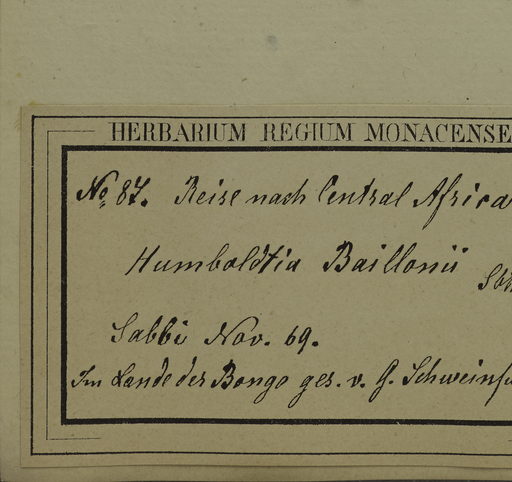 HERBARIUM REGIUM MONACENSE
No. 87. Reise nach Central Africa
Humboldtia Baillonii
Sabbi Nov. 69.
Im Lande der Bongo ges. v. G. Schweinfu